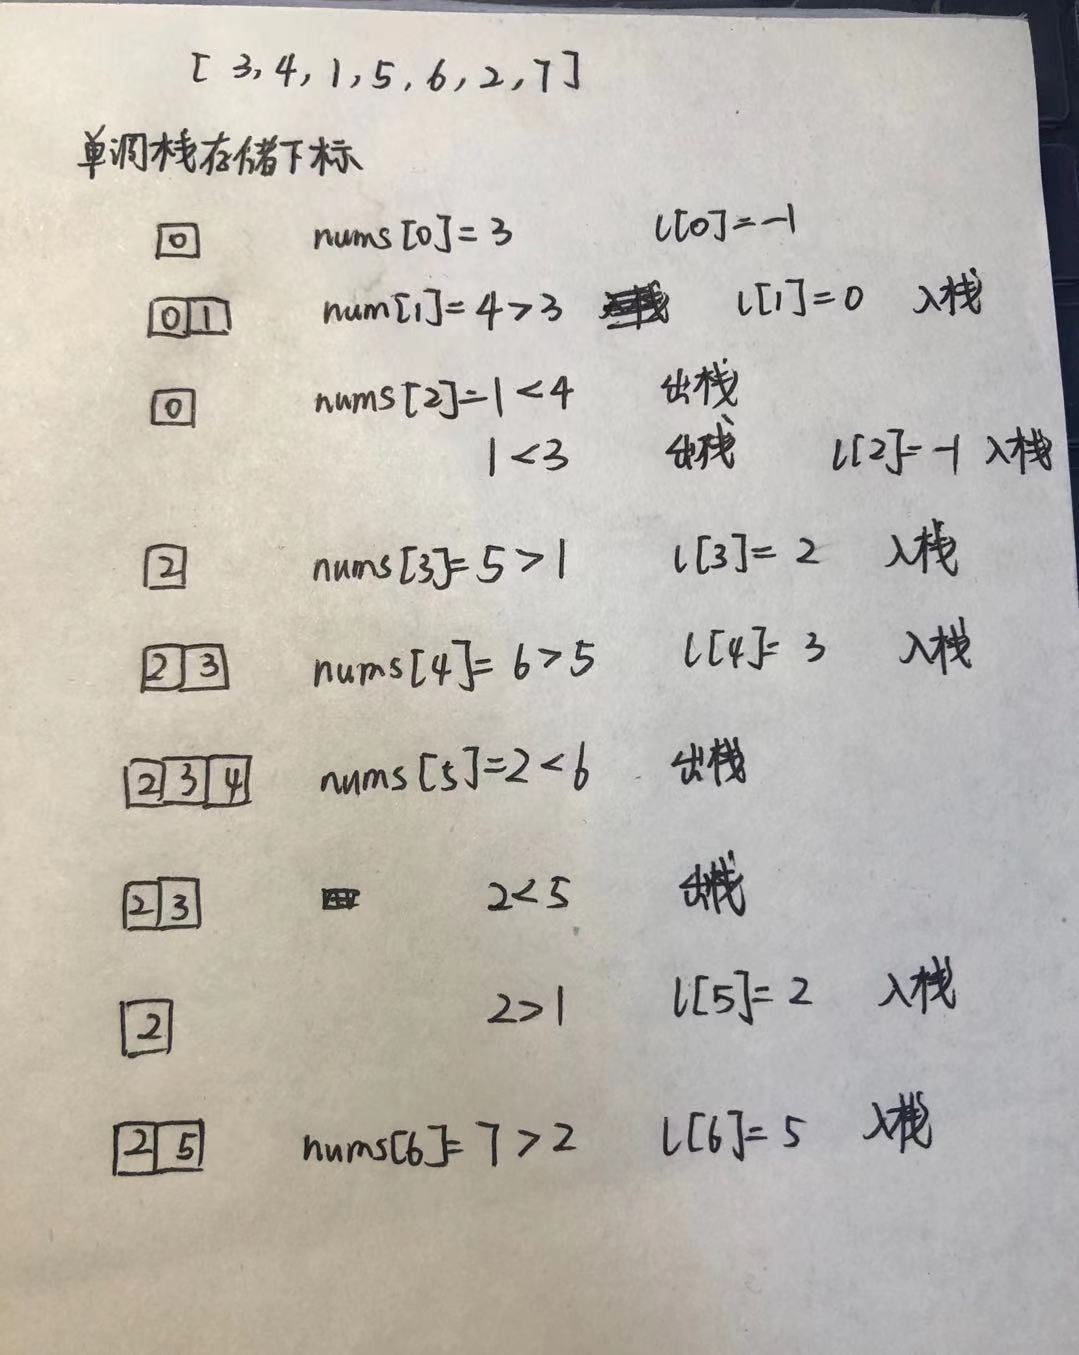 [ 3, 4, 1, 5, 6, 2, 7 ]
单调栈存储下标
0 nums[0]=3 l[0]=-1
0 1 num[1]=4>3 l[1]=0 入栈
0 nums[2]=1<4 出栈
1<3 出栈 l[2]=-1 入栈
2 nums[3]=5>1 l[3]=2 入栈
2 3 nums[4]=6>5 l[4]=3 入栈
2 3 4 nums[5]=2<6 出栈
2 3 2<5 出栈
2 2>1 l[5]=2 入栈
2 5 nums[6]=7>2 l[6]=5 入栈